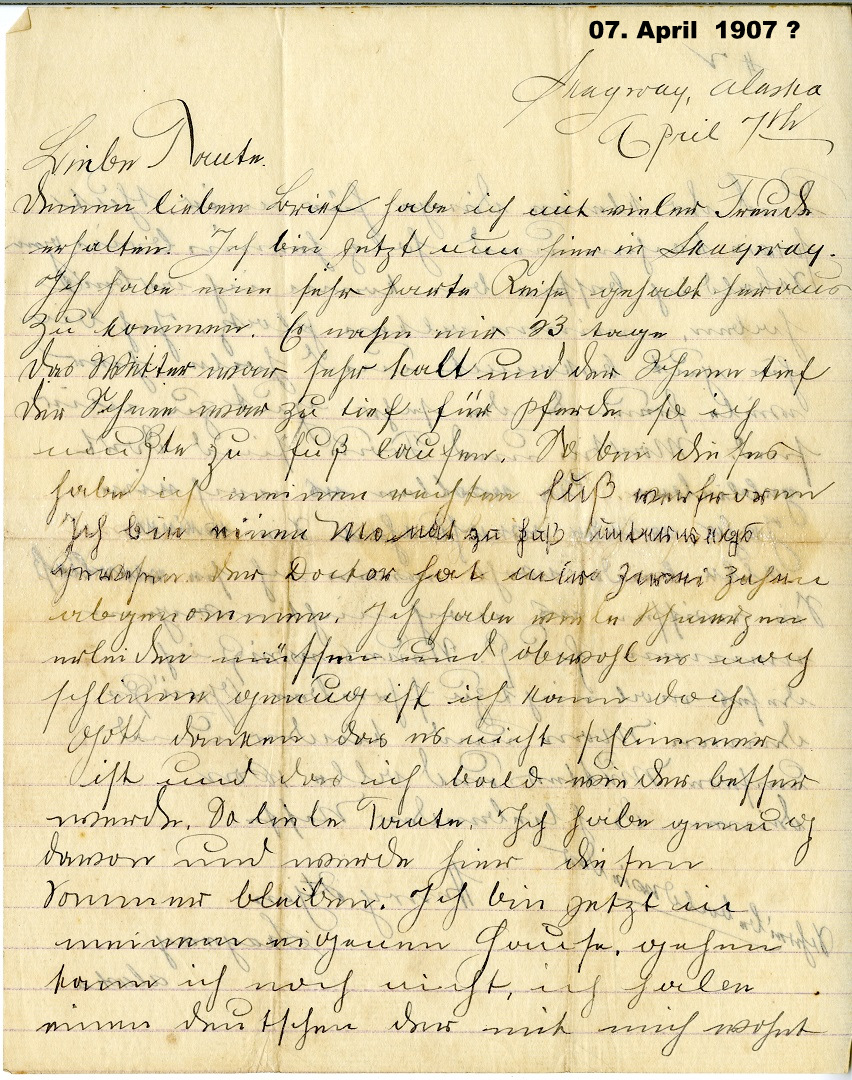 07. April 1907 ?
Skagway, Alaska
April 7th
Liebe Tante.
Deinen lieben Brief habe ich mit vieler Freude
erhalten. Ich bin jetzt nun hier in Skagway.
Ich habe eine sehr harte Reise gehabt heraus
zu kommen. Es nahm mir 23 tage
das Wetter war sehr kalt und der Schnee tief
der Schnee war zu tief für Pferde so ich
mußte zu fuß laufen. So bei dieses
habe ich meinen rechten fuß verfroren
Ich bin einen Monat zu fuß unterwegs
gewesen der Doctor hat mir zwei Zehen
abgenommen. Ich habe viele Schmerzen
erleiden müssen und obwohl es noch
schlimm genug ist ich kann doch
Gott danken das es nicht schlimmer
ist und das ich bald wieder besser
werde. So liebe Tante. Ich habe genug
davon und werde hier diesen
Sommer bleiben. Ich bin jetzt in
meinem eigenen Hause. gehen
kann ich noch nicht, ich habe
einen deutschen der mit mich wohnt